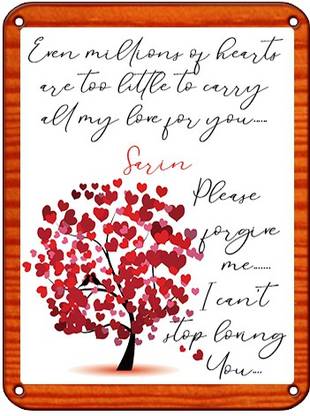 Even millions of hearts
are too little to carry
all my love for you.....
Sarin
Please
forgive
me.......
I can't
stop loving
You....